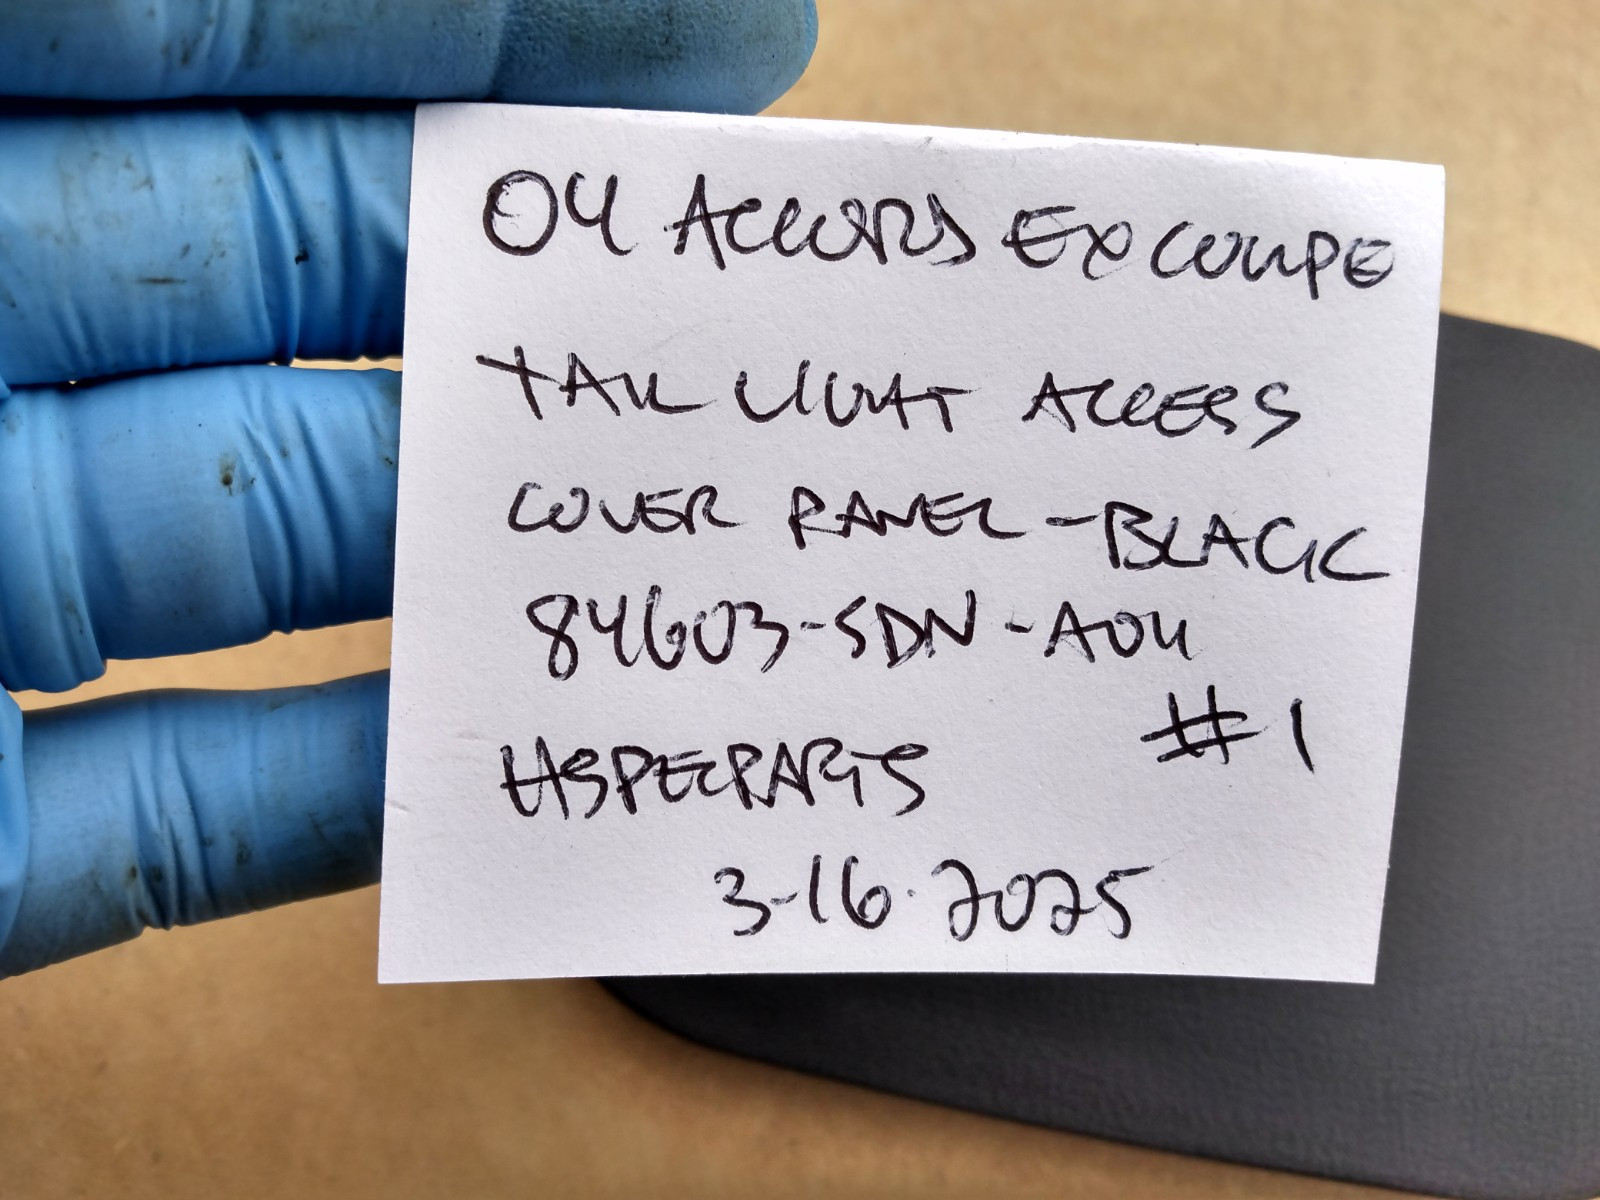 04 ACCORD EX COUPE
TAIL LIGHT ACCESS
COVER PANEL - BLACK
84603-SDN-A04
#1
HSPECPARTS
3-16-2025